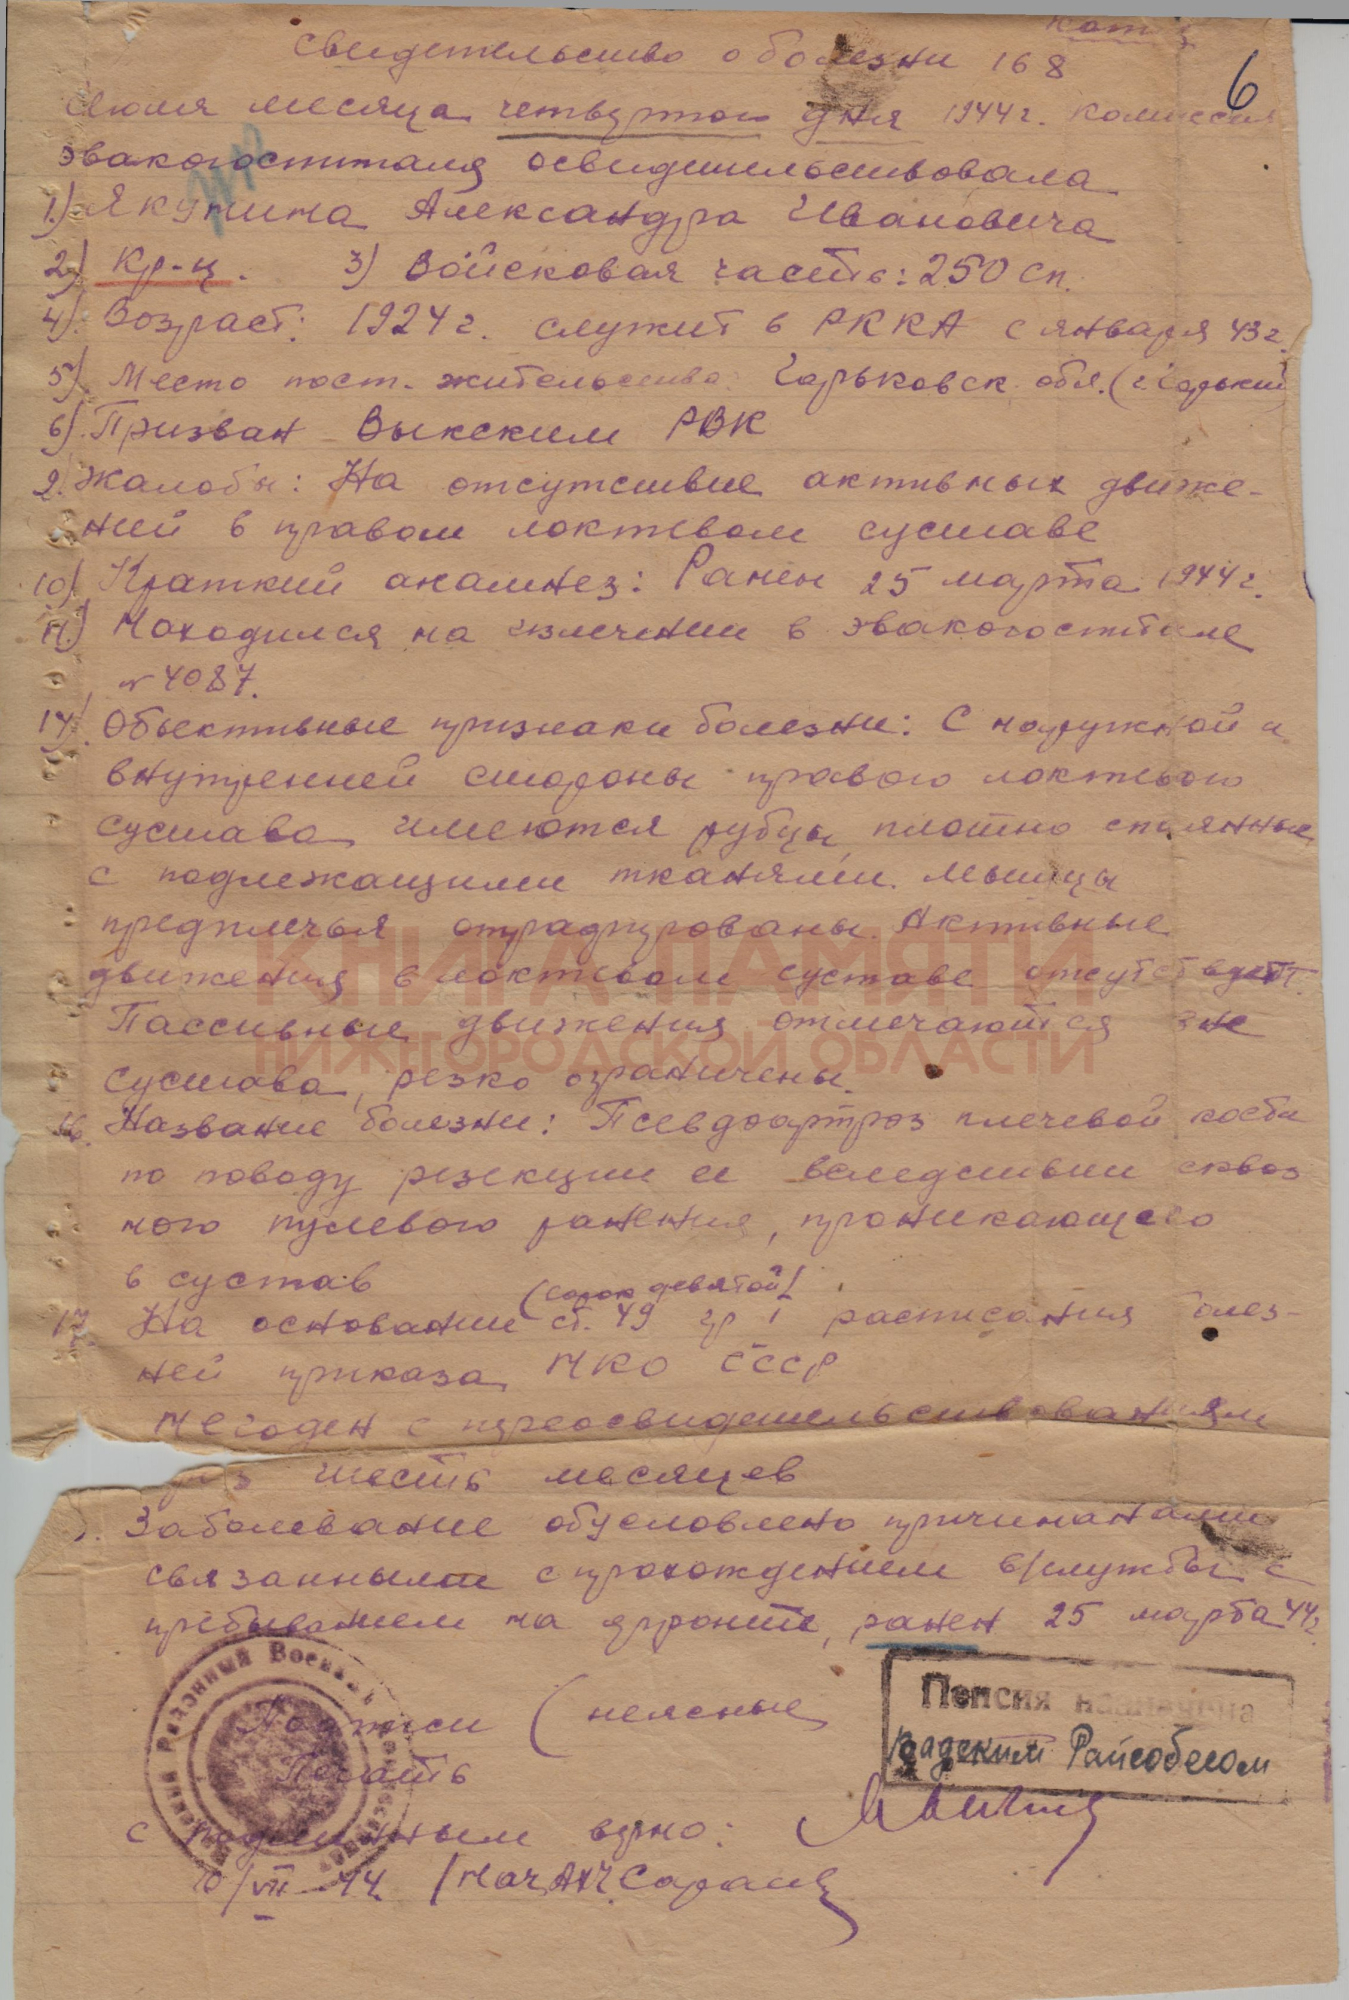 Копия
6
Свидетельство о болезни 168
Июля месяца четвертого дня 1944 г. комиссия
эвакогоспиталя освидетельствовала
1) Якунина Александра Ивановича
2) Кр-ц. 3) Войсковая часть: 250 сп.
4) Возраст: 1924 г. служит в РККА с января 43 г.
5) Место пост. жительства: Горьковск. обл. (г. Горький
6) Призван Выксским РВК
9. Жалобы: На отсутствие активных движе-
ний в правом локтевом суставе
10) Краткий анамнез: Ранен 25 марта 1944 г.
11) Находился на излечении в эвакогоспитале
№ 4087.
14) Объективные признаки болезни: С наружной и
внутренней стороны правого локтевого
сустава имеются рубцы плотно спаянные
с подлежащими тканями. Мышцы
предплечья атрофированы. Активные
движения в локтевом суставе отсутствуют.
Пассивные движения отмечаются вне
сустава, резко ограничены.
16. Название болезни: Псевдоартроз плечевой кости
по поводу резекции ее вследствии сквоз
ного пулевого ранения, проникающего
в сустав
(сорок девятой)
17 На основании ст. 49 гр I расписания болез-
ней приказа НКО СССР
Негоден с переосвидетельствованием
через шесть месяцев
Заболевание обусловлено причинами
связанными с прохождением в/службы с
пребыванием на фронте, ранен 25 марта 44 г.
Подписи (неясные
Печать
Пенсия назначена
Райсобесом
с подлинным верно:
10/VII 44 /Нач АХЧ
Районный Военный
КНИГА ПАМЯТИ
НИЖЕГОРОДСКОЙ ОБЛАСТИ